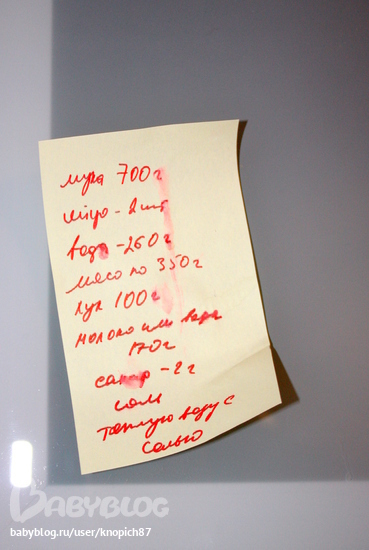 мука 700г
яйцо - 2 шт
вода - 260г
мясо по 350г
лук 100г
молоко или вода
170г
сахар - 2г
соль
теплую воду с
солью
BABYBLOG
babyblog.ru/user/knopich87